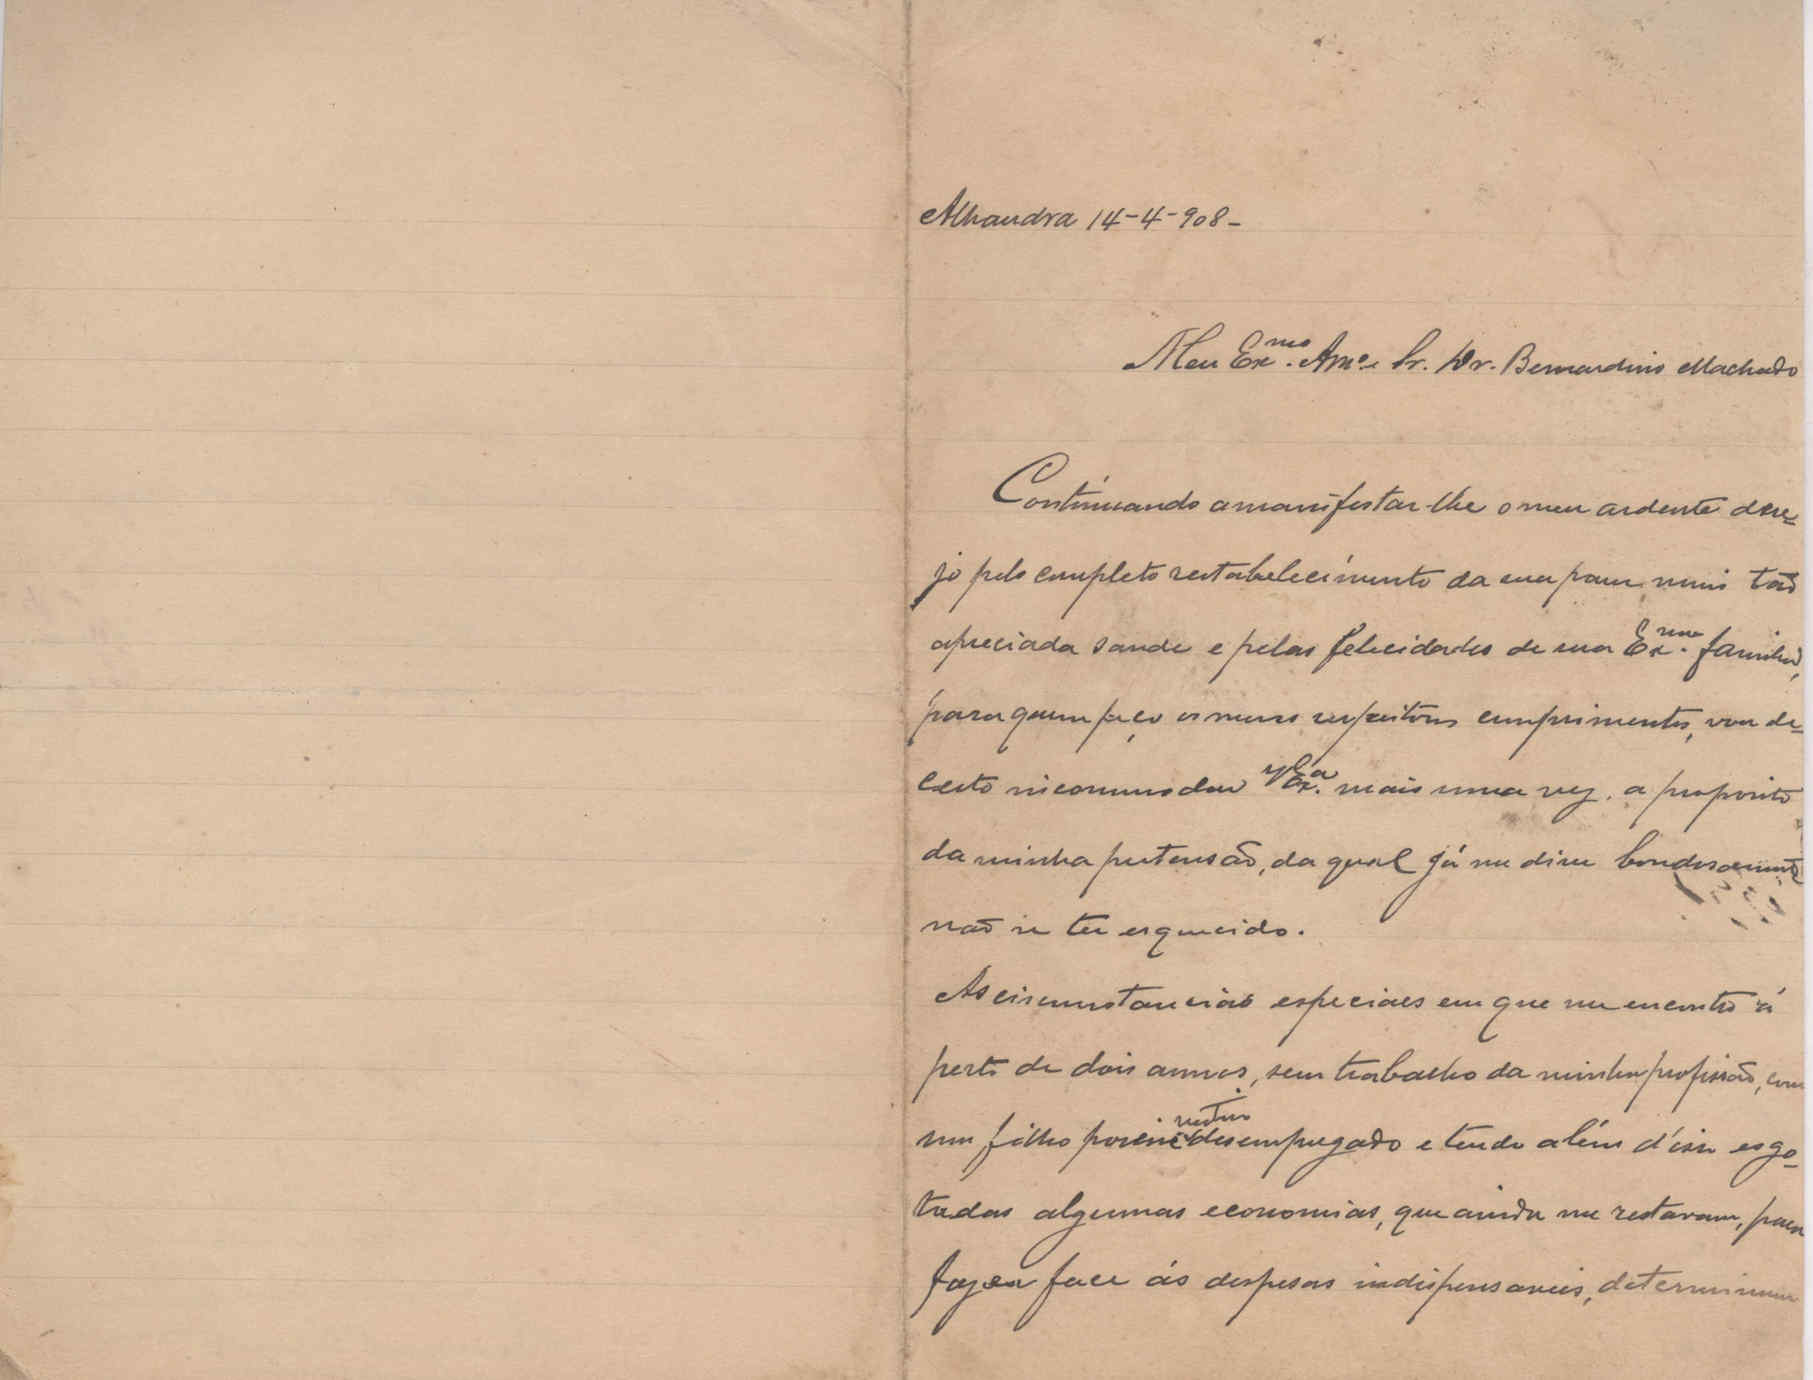 Alhandra 14-4-908-
Meu Ex.mo Am.o e Sr. Dr. Bernardino Machado
Continuando a manifestar-lhe o meu ardente dese-
jo pelo completo restabelecimento da sua para mim tão
apreciada saude e pelas felicidades de sua Ex.ma familia,
para quem faço os meus respeitosos cumprimentos, vou de-
certo incommodar V. Ex.a mais uma vez, a proposito
da minha pretensão, da qual já me disse bondosamente
não se ter esquecido.
As circunstancias especiaes em que me encontro á
perto de dois annos, sem trabalho da minha profissão, com
um filho desempregado e tendo além d'isso esgo-
tadas algumas economias, que ainda me restavam, para
fazer face ás despesas indispensaveis, determinam